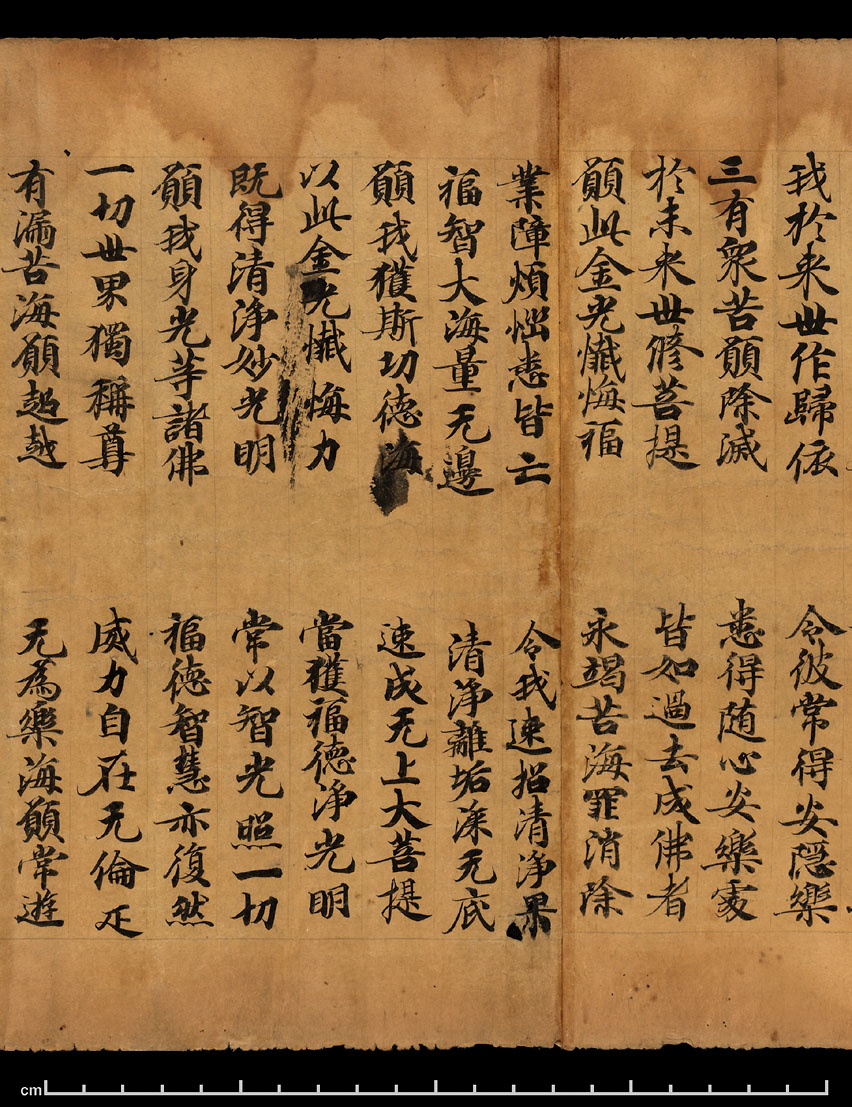 我於来世作歸依　令彼常得安隱樂
三有衆苦願除滅　悉得随心安樂處
於未来世修菩提　皆如過去成佛者
願此金光懺悔福　永竭苦海罪消除
業障煩惱悉皆亡　令我速招清淨果
福智大海量无邊　清淨離垢深无底
願我獲斯功德海　速成无上大菩提
以此金光懺悔力　當獲福德淨光明
既得清淨妙光明　常以智光照一切
願我身光等諸佛　福德智慧亦復然
一切世界獨稱尊　威力自在无倫疋
有漏苦海願超越　无為樂海願常遊
cm